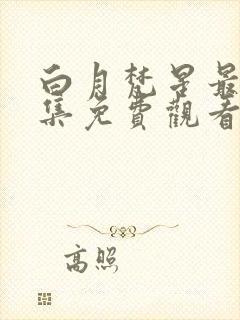 白月梵星最
集免費觀看
高照